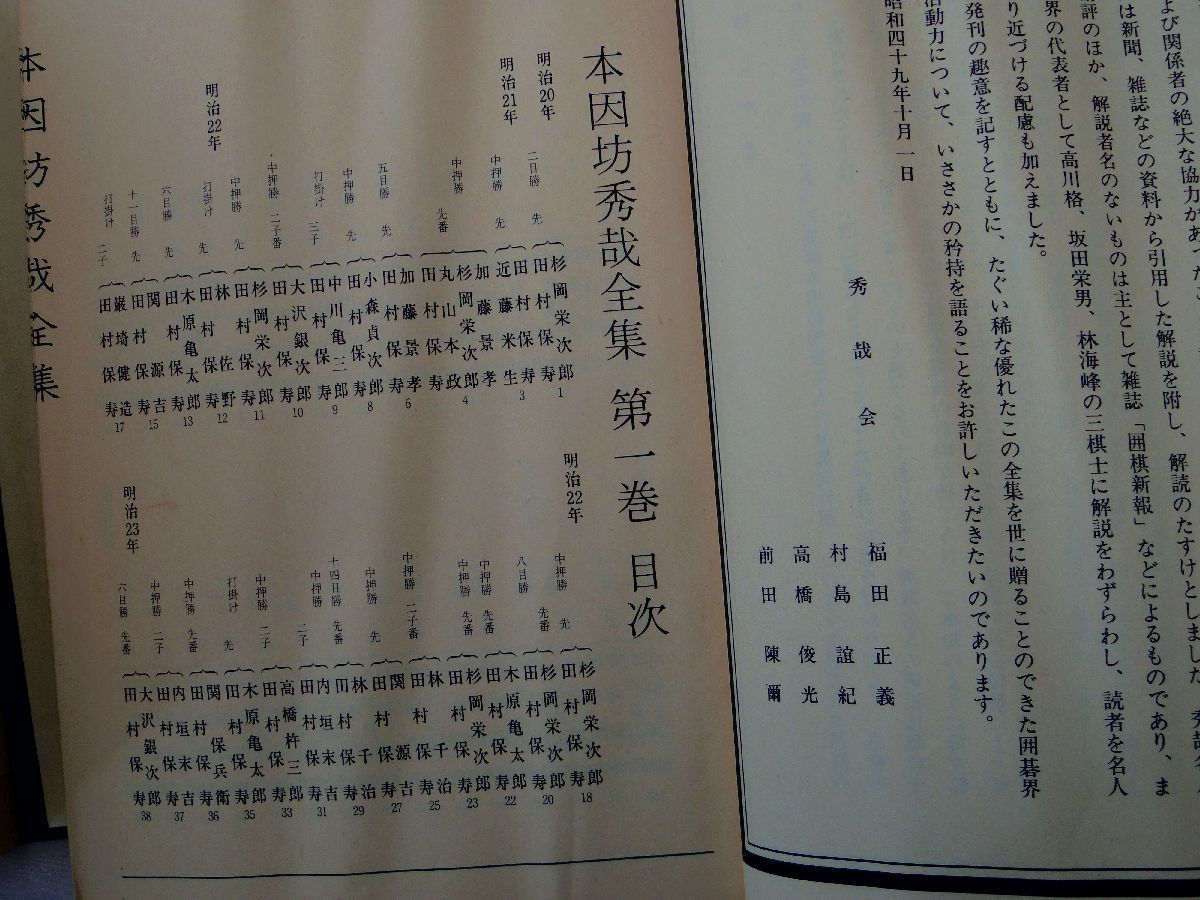 よび関係者の絶大な協力があった
は新聞、雑誌などの資料から引用した解説を附し、解読のたすけとしました
評のほか、解説者名のないものは主として雑誌「囲棋新報」などによるものであり、ま
界の代表者として高川格、坂田栄男、林海峰の三棋士に解説をわずらわし、読者を名人
り近づける配慮も加えました。
発刊の趣意を記すとともに、たぐい稀な優れたこの全集を世に贈ることのできた囲碁界
活動力について、いささかの矜持を語ることをお許しいただきたいのであります。
昭和四十九年十月一日
秀哉会
福田正義
村島誼紀
高橋俊光
前田陳爾
本因坊秀哉全集 第一巻 目次
明治20年
二目勝 先 杉岡栄次郎 田村保寿 1
明治21年
中押勝 先 近藤米生 田村保寿 3
中押勝 先番 杉岡栄次郎 加藤景孝 丸山本政 田村保寿 4
五目勝 先 加藤景孝 田村保寿 6
中押勝 先 小森貞次郎 田村保寿 8
打掛け 三子 中川亀三郎 田村保寿 9
中押勝 二子番 大沢銀次郎 田村保寿 10
明治22年
中押勝 先 杉岡栄次郎 田村保寿 11
打掛け 先 林佐野 田村保寿 12
六目勝 先 木原亀太郎 田村保寿 13
十一目勝 先 関源吉 田村保寿 15
打掛け 二子 巌埼健造 田村保寿 17
明治22年
中押勝 先 杉岡栄次郎 田村保寿 18
八目勝 先番 杉岡栄次郎 田村保寿 20
中押勝 先番 木原亀太郎 田村保寿 22
中押勝 先番 杉岡栄次郎 田村保寿 23
中押勝 二子番 林千治 田村保寿 25
中押勝 先 関源吉 田村保寿 27
十四目勝 先番 林千治 田村保寿 29
中押勝 二子 内垣末吉 田村保寿 31
中押勝 二子 高橋杵三郎 田村保寿 33
打掛け 先 木原亀太郎 田村保寿 35
中押勝 先番 関保兵衛 田村保寿 36
明治23年
中押勝 二子 内垣末吉 田村保寿 37
六目勝 先番 大沢銀次郎 田村保寿 38
本因坊秀哉全集